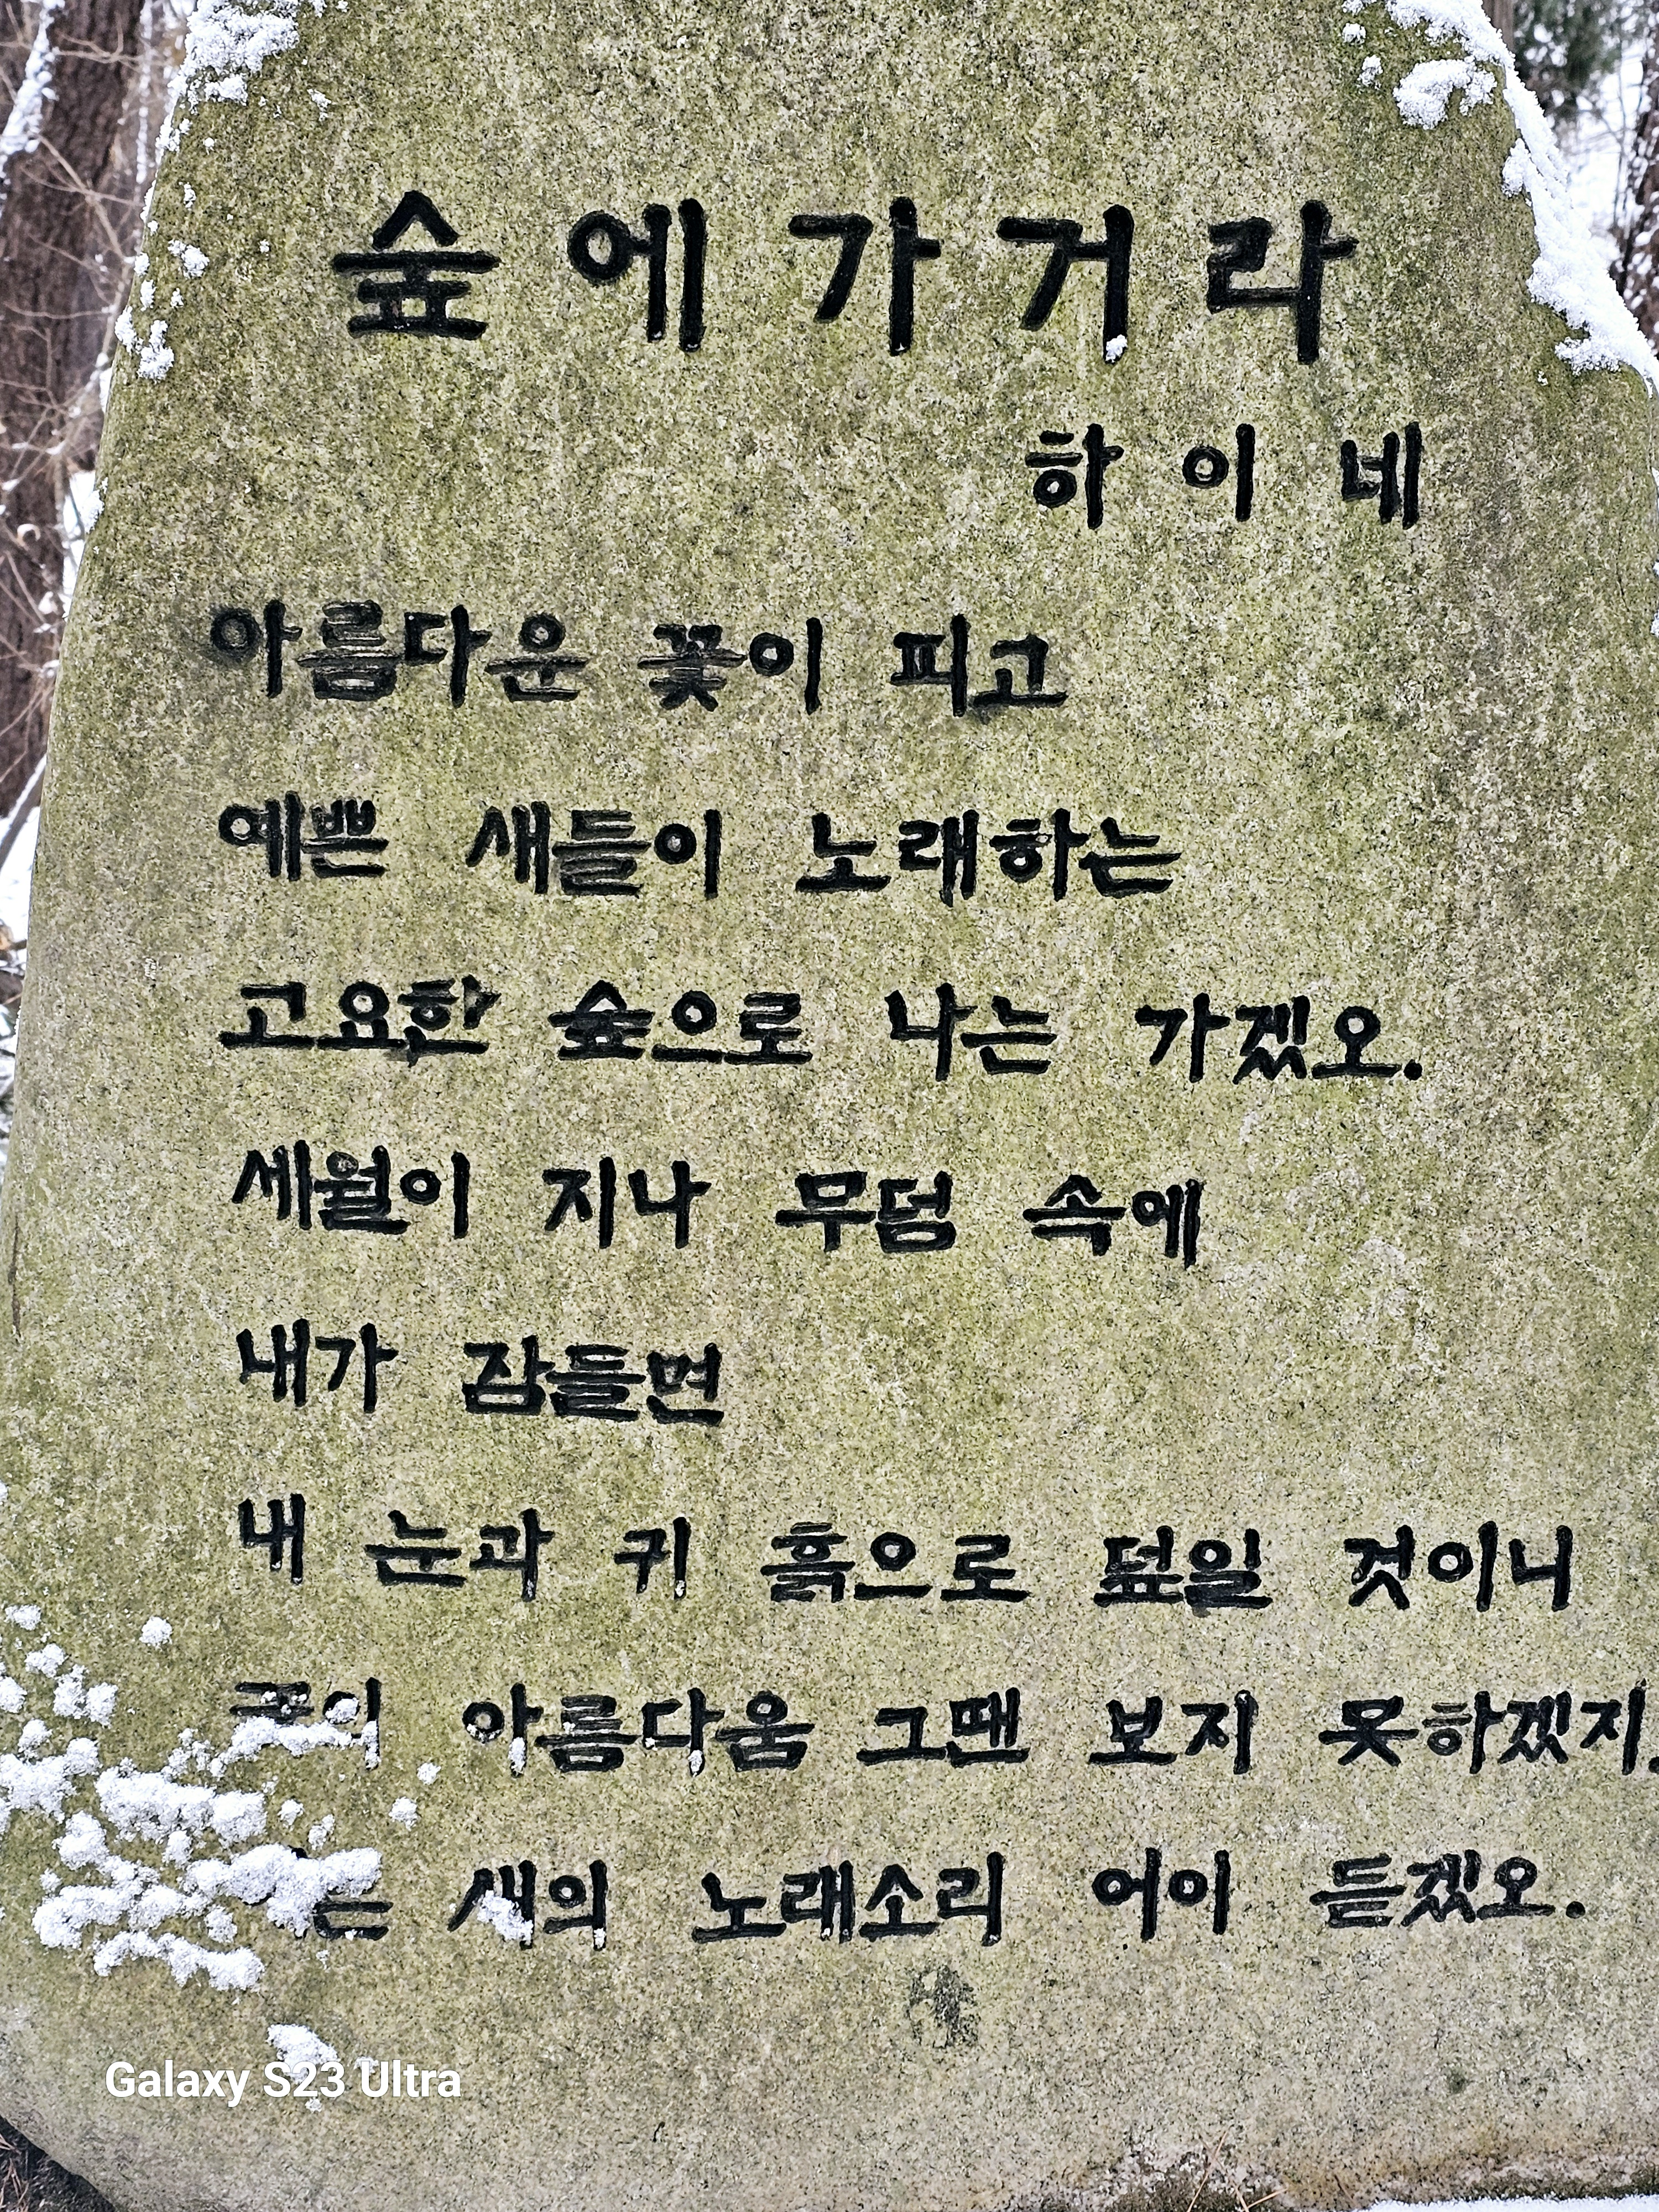 숲에가거라
하이네
아름다운 꽃이 피고
예쁜 새들이 노래하는
고요한 숲으로 나는 가겠오.
세월이 지나 무덤 속에
내가 잠들면
내 눈과 귀 흙으로 덮일 것이니
아름다움 그땐 보지 못하겠지.
새의 노래소리 어이 듣겠오.
Galaxy S23 Ultra